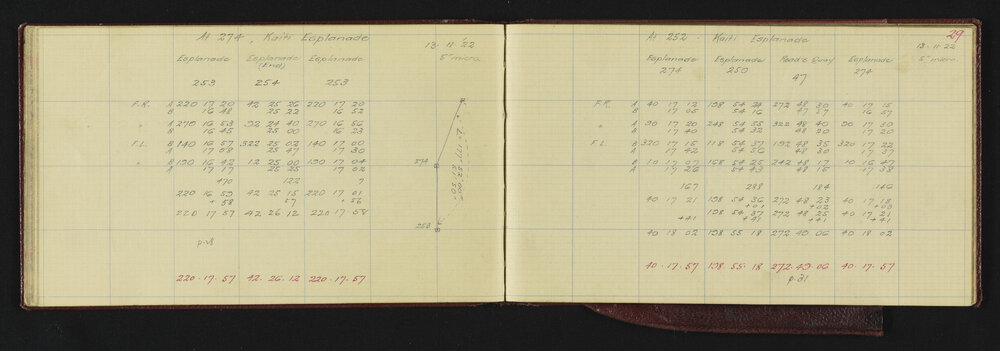 At 274, Kaiti Esplanade
13·11·'22
Esplanade Esplanade Esplanade 5" micro.
(End)
253 254 253
F.R. A 220 17 20 42 25 26 220 17 20
B 16 48 25 22 16 52
" A 270 16 53 92 24 40 270 16 56
B 16 45 25 00 16 23
F.L. B 140 16 57 322 25 02 140 17 00
A 17 08 25 47 17 30
" B 190 16 42 12 25 00 190 17 04
A 17 17 25 25 17 02
470 122 7
220 16 59 42 25 15 220 17 01
+ 58 57 + 56
220 17 57 42 26 12 220 17 58
p.v8
220·17·57 42·26·12 220·17·57
274
253
29
At 252 - Kaiti Esplanade
13·11·22
Esplanade Esplanade Read's Quay Esplanade 5" micro.
274 250 47 274
F.R. A 40 17 12 198 54 24 272 48 30 40 17 15
B 17 05 54 16 47 57 16 57
" A 90 17 20 248 54 55 322 48 40 90 17 30
B 17 40 54 32 48 20 17 20
F.L. B 320 17 15 118 54 37 192 48 35 320 17 22
A 17 42 54 56 48 30 17 37
" B 10 17 07 168 54 25 242 48 17 10 16 47
A 17 26 54 43 48 15 17 38
167 288 184 146
40 17 21 198 54 36 272 48 23 40 17 18
+01 +02 +03
198 54 37 272 48 25 40 17 21
+41 +41 +41 +41
40 18 02 198 55 18 272 49 06 40 18 02
40·17·57 198·55·18 272·49·06 40·17·57
p.31